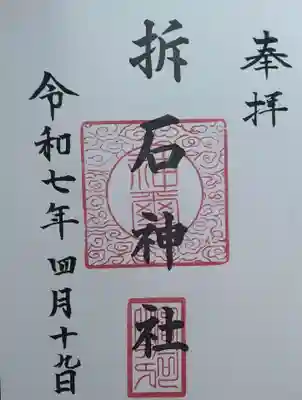 奉拝
拆石神社
令和七年四月十九日